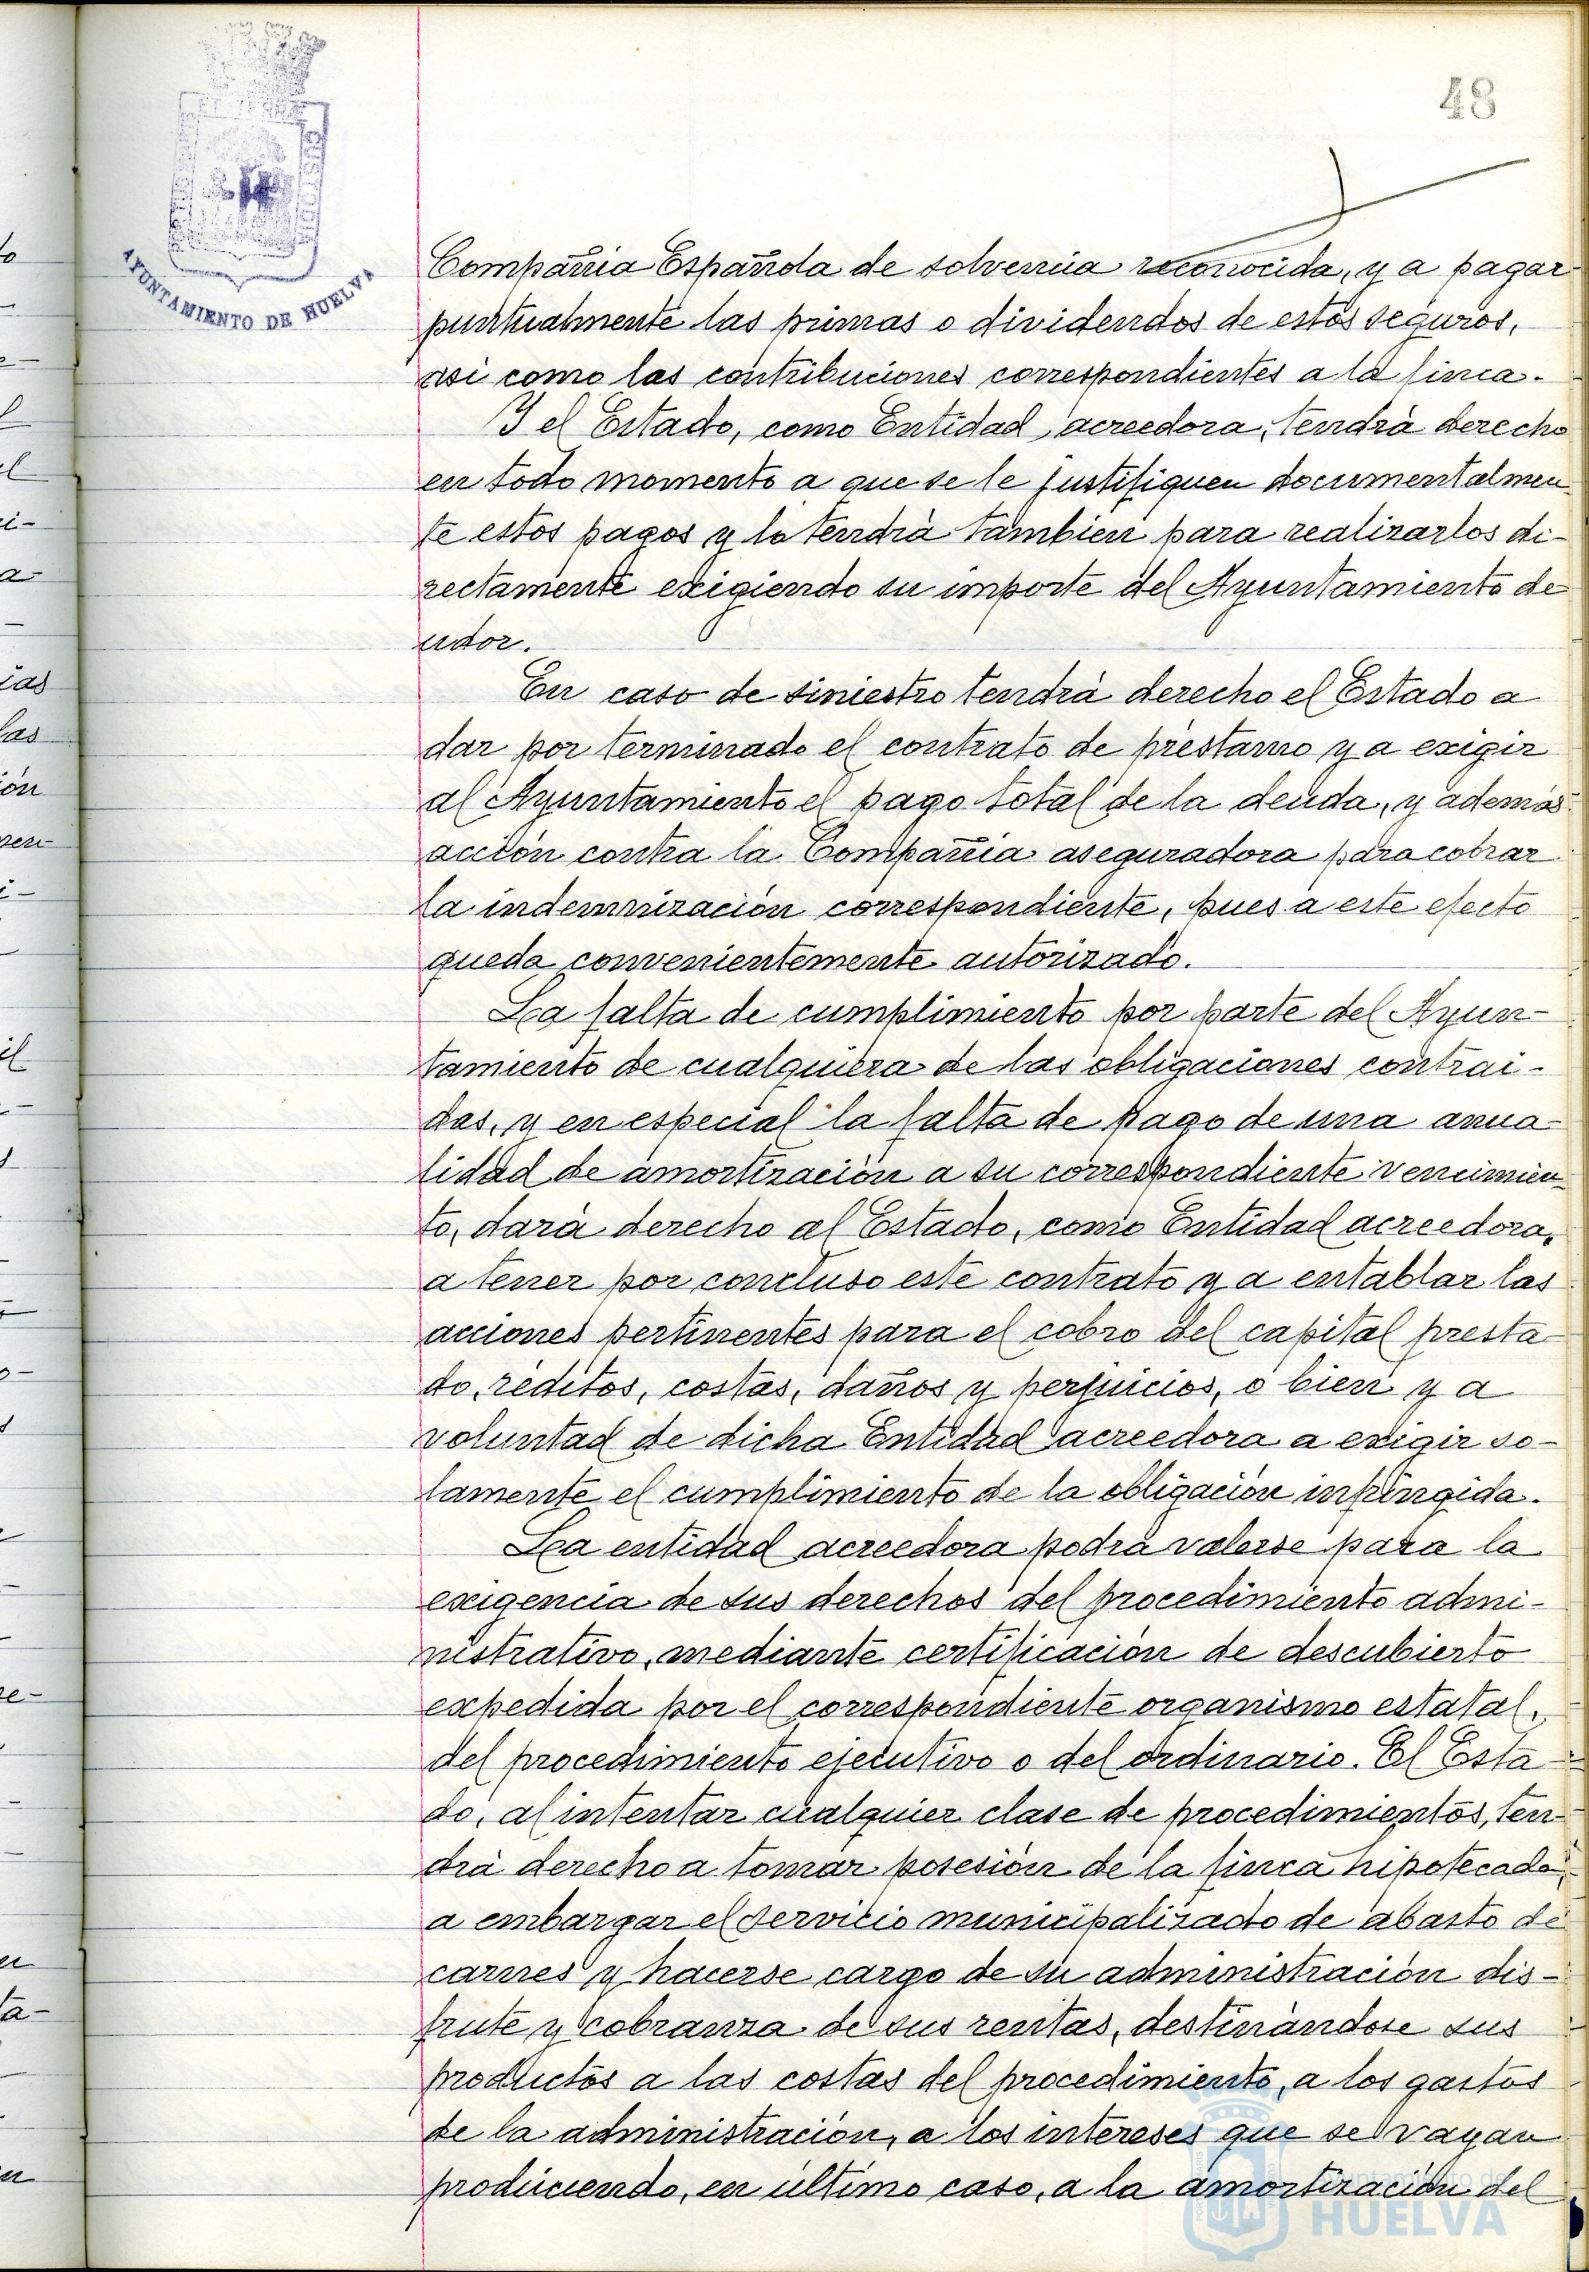 48
AYUNTAMIENTO DE HUELVA
Compañia Española de solvencia reconocida, y a pagar
puntualmente las primas o dividendos de estos seguros,
asi como las contribuciones correspondientes a la finca.
Y el Estado, como Entidad acreedora, tendrà derecho
en todo momento a que se le justifiquen documentalmen-
te estos pagos y lo tendrà tambien para realizarlos di-
rectamente exigiendo su importe del Ayuntamiento de
udor.
En caso de siniestro tendrà derecho el Estado a
dar por terminado el contrato de prèstamo y a exigir
al Ayuntamiento el pago total de la deuda, y ademàs
acciòn contra la Compañia aseguradora para cobrar
la indemnizaciòn correspondiente, pues a este efecto
queda convenientemente autorizado.
La falta de cumplimiento por parte del Ayun-
tamiento de cualquiera de las obligaciones contrai-
das, y en especial la falta de pago de una anua-
lidad de amortizaciòn a su correspondiente vencimien-
to, darà derecho al Estado, como Entidad acreedora,
a tener por concluso este contrato y a entablar las
acciones pertinentes para el cobro del capital presta-
do, rèditos, costas, daños y perjuicios, o bien y a
voluntad de dicha Entidad acreedora a exigir so-
lamente el cumplimiento de la obligaciòn infringida.
La entidad acreedora podrà valerse para la
exigencia de sus derechos del procedimiento admi-
nistrativo, mediante certificaciòn de descubierto
expedida por el correspondiente organismo estatal,
del procedimiento ejecutivo o del ordinario. El Esta-
do, al intentar cualquier clase de procedimientos, ten-
drà derecho a tomar posesiòn de la finca hipotecada,
a embargar el servicio municipalizado de abasto de
carnes y hacerse cargo de su administraciòn dis-
frute y cobranza de sus rentas, destinàndose sus
productos a las costas del procedimiento, a los gastos
de la administraciòn, a los intereses que se vayan
produciendo, en ùltimo caso, a la amortizaciòn del
Ayuntamiento de
HUELVA